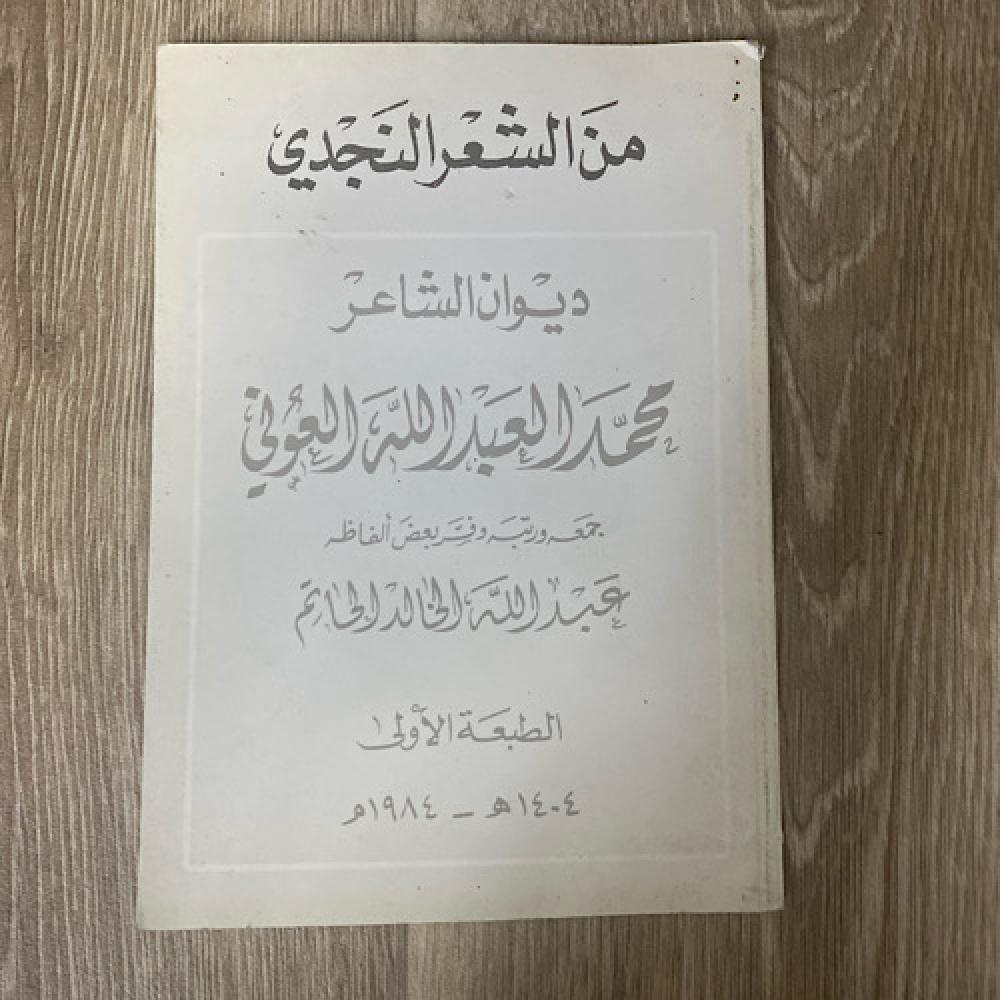 من الشعر النجدي
ديوان الشاعر
محمد العبد الله العوني
جمعه ورتبه وفسر بعض ألفاظه
عبد الله الخالد الحاتم
الطبعة الأولى
١٤٠٤هـ - ١٩٨٤م